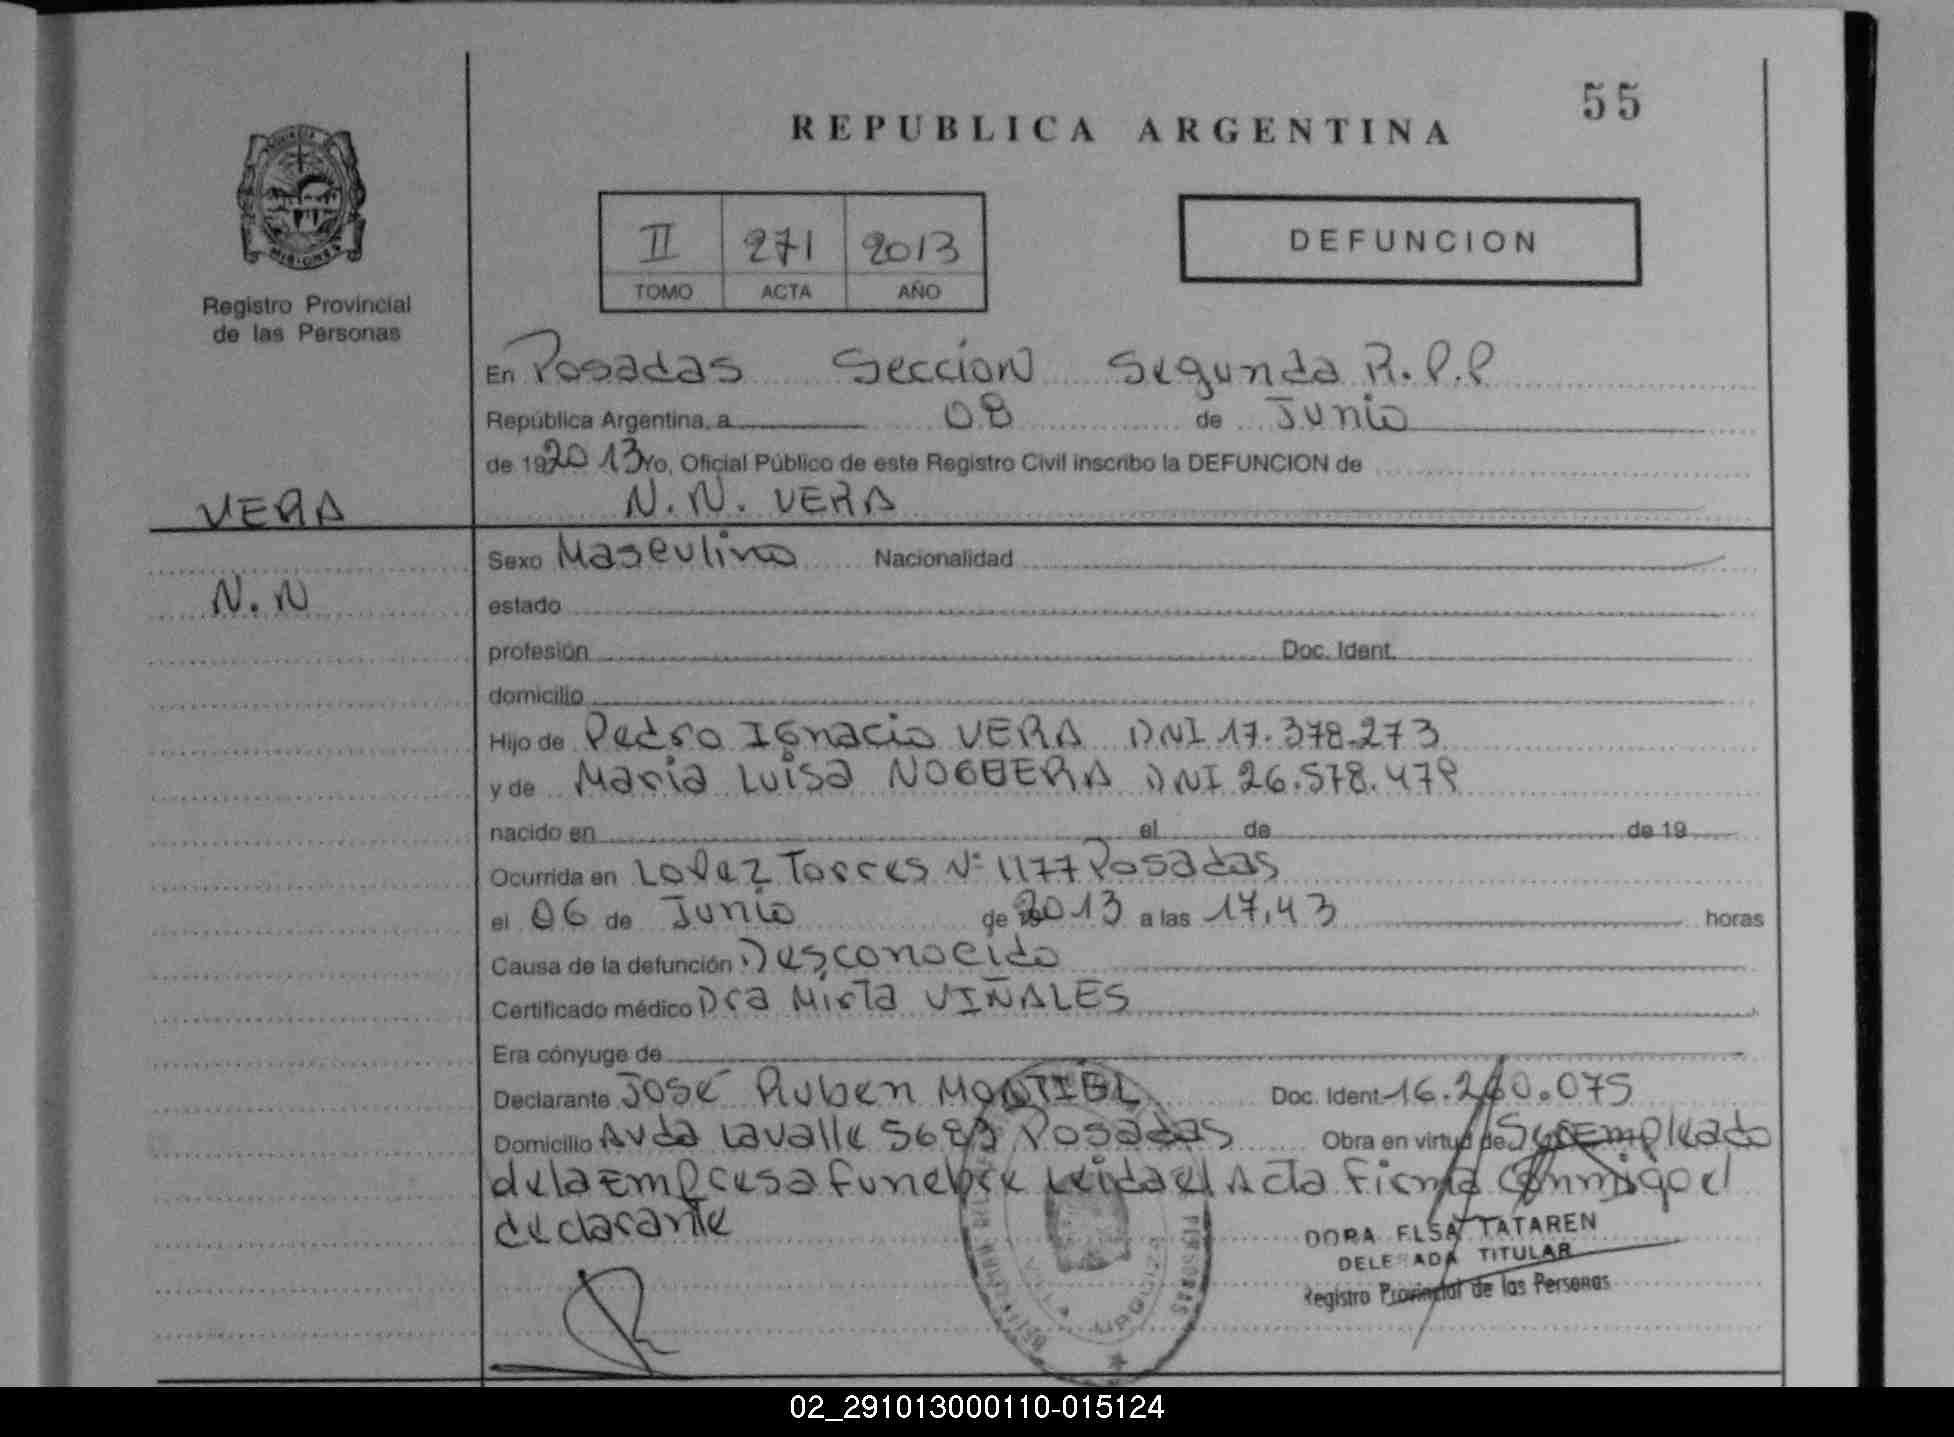 55
REPUBLICA ARGENTINA
II 271 2013
TOMO ACTA AÑO
DEFUNCION
Registro Provincial
de las Personas
En Posadas Seccion Segunda R.P.P
República Argentina, a 08 de Junio
de 192013 Yo, Oficial Público de este Registro Civil inscribo la DEFUNCION de
N.N. VERA
VERA
N.N
Sexo Masculino Nacionalidad
estado
profesión Doc. Ident.
domicilio
Hijo de Pedro Ignacio VERA DNI 17.378.273
y de Maria Luisa NOGUERA DNI 26.578.479
nacido en el de de 19
Ocurrida en Lopez Torres Nº 1177 Posadas
el 06 de Junio de 2013 a las 17,43 horas
Causa de la defunción Desconocido
Certificado médico Dra Mirta VIÑALES
Era cónyuge de
Declarante José Ruben MONTIEL Doc. Ident. 16.260.075
Domicilio Avda Lavalle 5683 Posadas Obra en virtud de Ser Empleado
de la Empresa Funebre Leida el Acta Firma Conmigo el
declarante
DORA ELSA TATAREN
DELEGADA TITULAR
Registro Provincial de las Personas
02_291013000110-015124